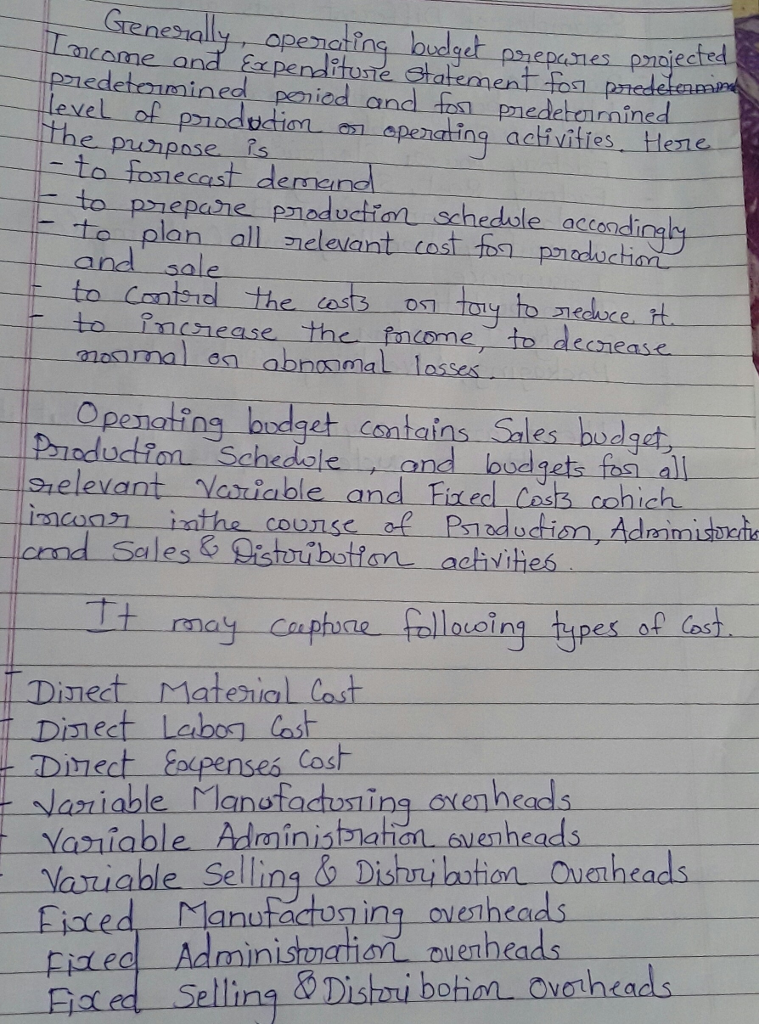 Generally, operating budget prepares projected
Income and Expenditure Statement for predetermined
predetermined period and for predetermined
level of production or operating activities. Here
the purpose is
- to forecast demand
- to prepare production schedule accordingly
- to plan all relevant cost for production
and sale
- to control the costs or try to reduce it.
- to increase the income, to decrease
normal or abnormal losses.
Operating budget contains Sales budget,
Production Schedule, and budgets for all
relevant Variable and Fixed Costs which
incurr in the course of Production, Administratio
and Sales & Distribution activities.
It may capture following types of Cost.
- Direct Material Cost
- Direct Labor Cost
- Direct Expenses Cost
- Variable Manufacturing overheads
- Variable Administration overheads
- Variable Selling & Distribution Overheads
Fixed Manufacturing overheads
Fixed Administration overheads
Fixed Selling & Distribution Overheads